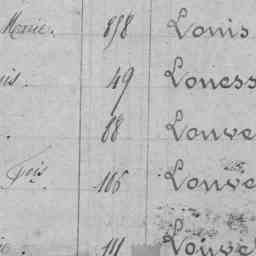 Marie. 858 Louis
is. 49 Loness
. 88 Louve
Fois 106 Louve
ie. 111 Louvel